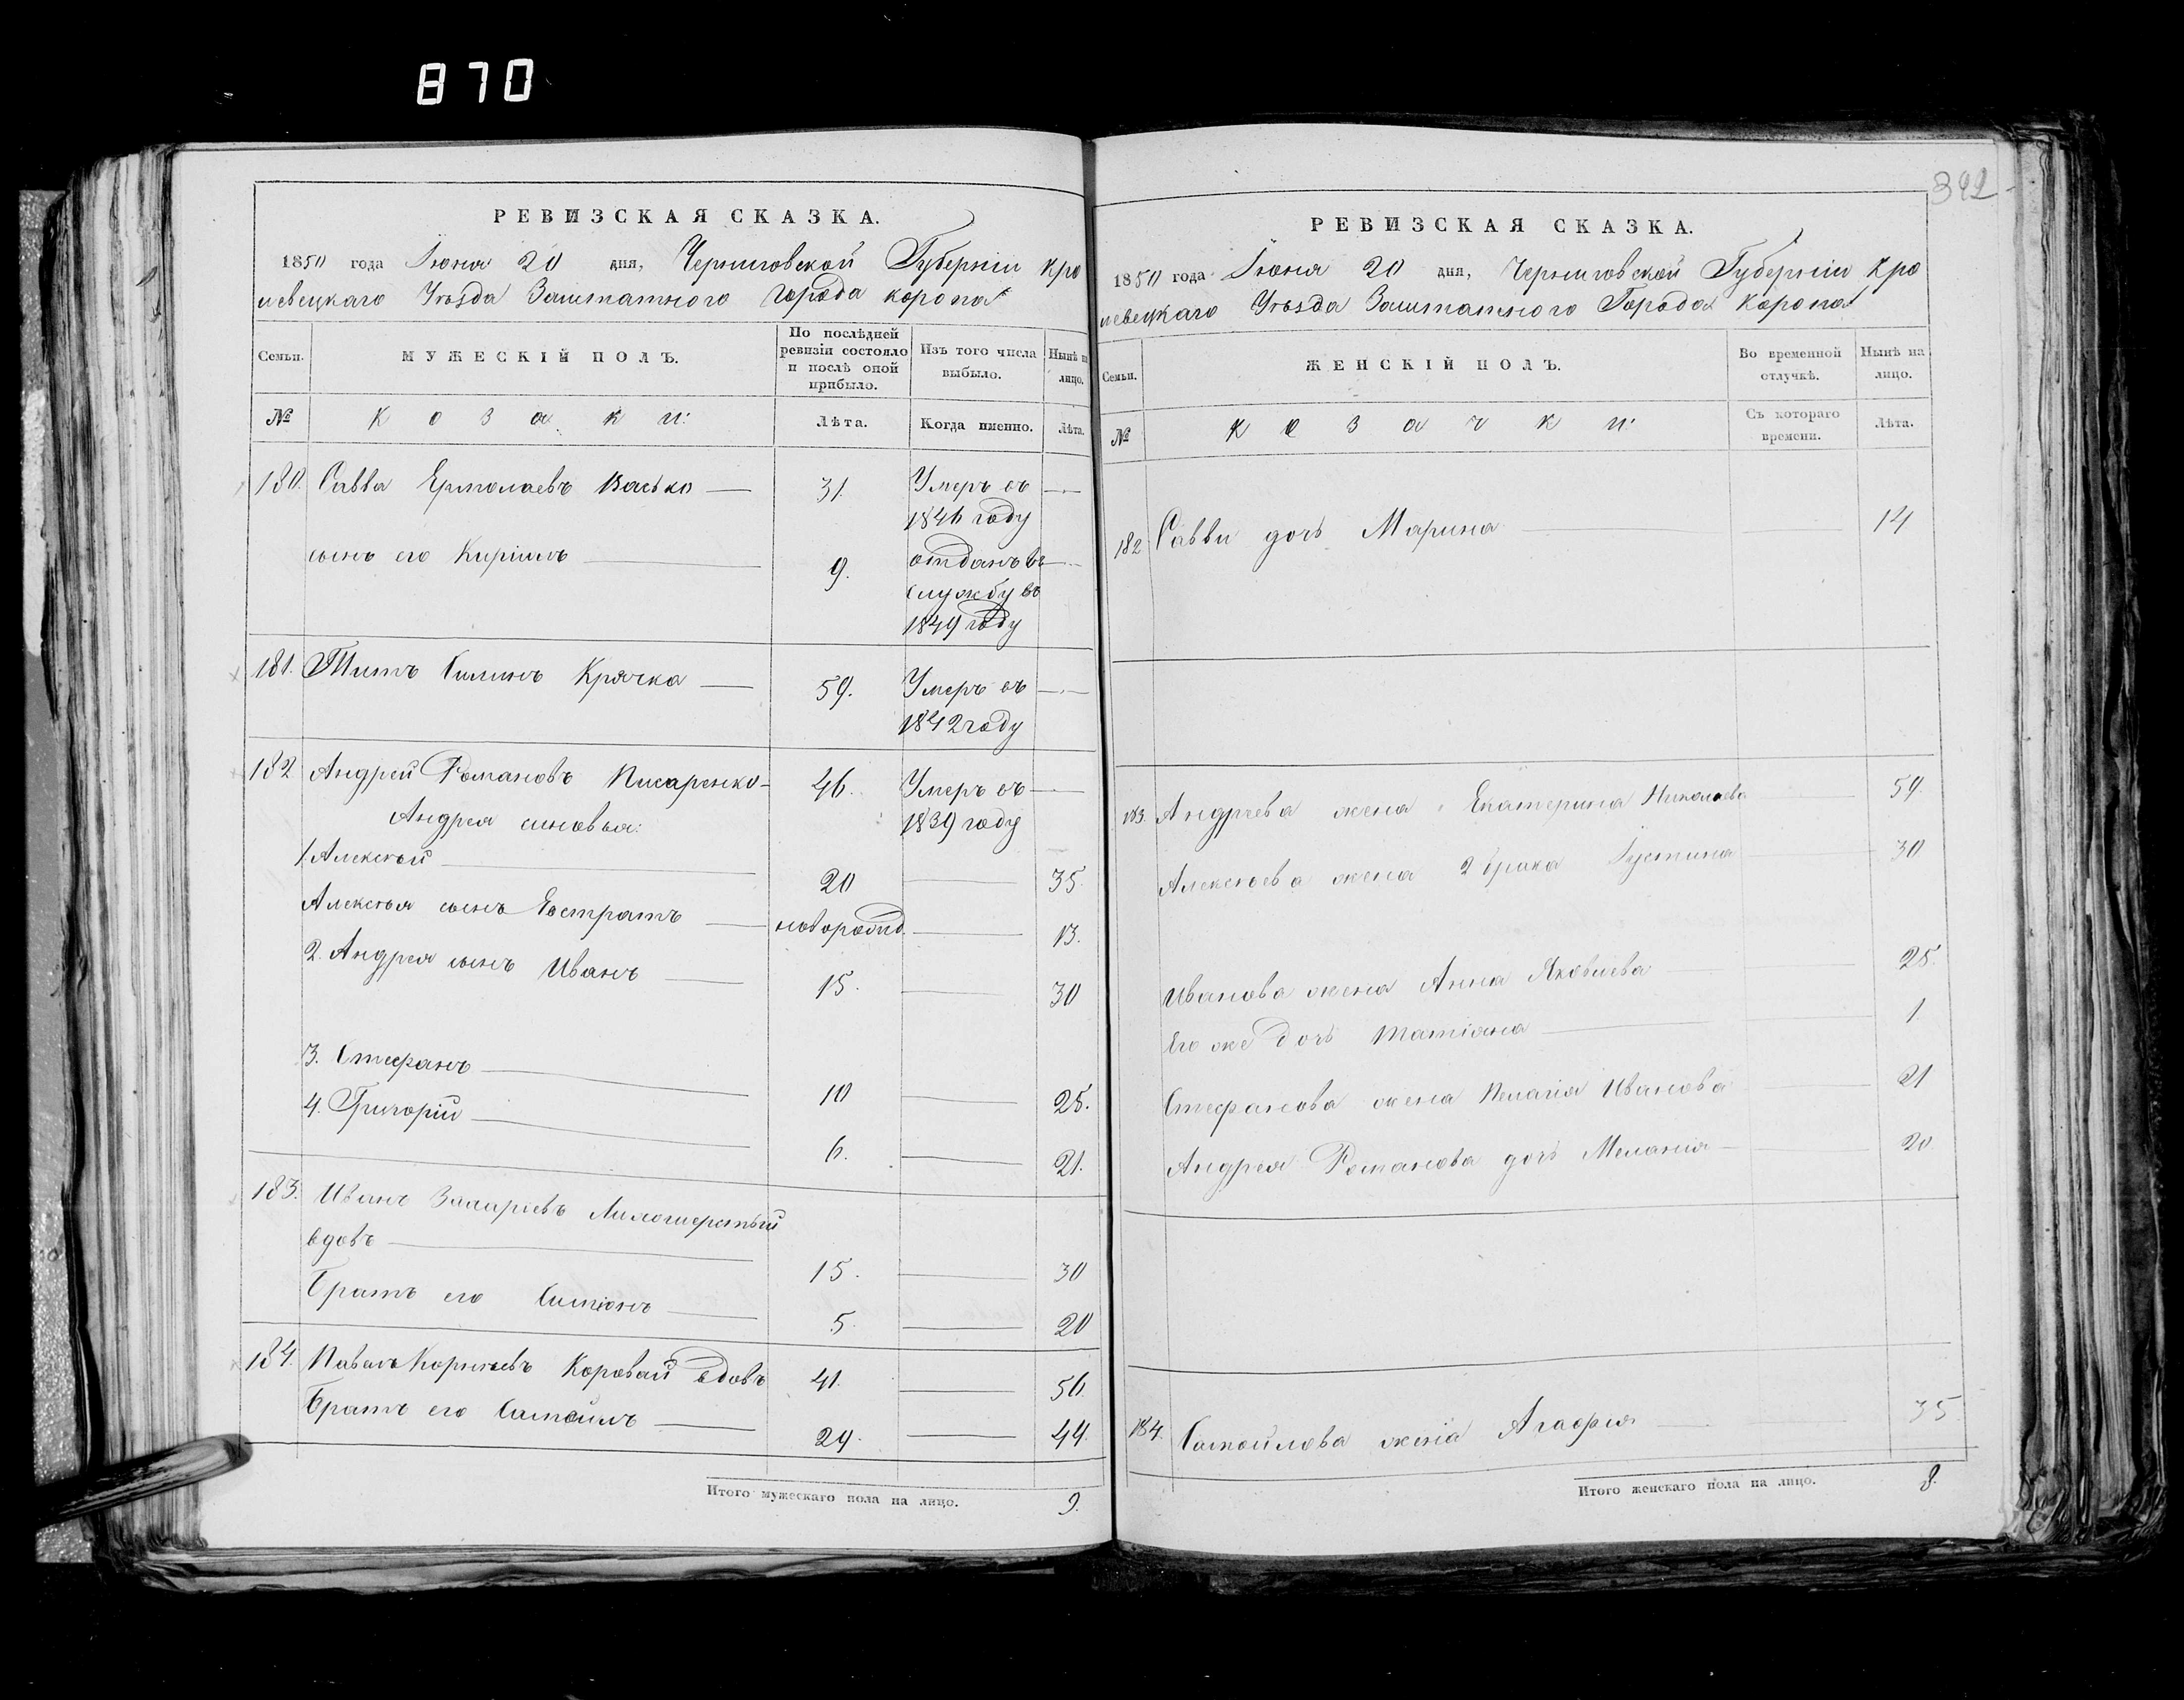 870
РЕВИЗСКАЯ СКАЗКА.
1850 года Іюня 20 дня, Черниговской Губерніи Кро
левецкаго Уѣзда Заштатного города Коропа
Семьи.
МУЖЕСКІЙ ПОЛЪ.
По послѣдней
ревизіи состояло
и послѣ оной
прибыло.
Изъ того числа
выбыло.
Нынѣ на
лицо.
№
Козаки:
Лѣта.
Когда именно.
Лѣта.
180. Савва Ермолаевъ Васько — 31. Умеръ въ —
1846 году
сынъ его Кирилъ — 9. отданъ въ —
службу въ
1849 году
181. Титъ Силинъ Крячка — 59. Умеръ въ —
1842 году
182 Андрей Романовъ Писаренко - 46. Умеръ въ —
Андрея синовья: 1839 году
1. Алексѣй — 20 — 35.
Алексѣя сынъ Евстратъ — новорожд. — 13.
2. Андрея сынъ Иванъ — 15. — 30
3. Стефанъ — 10 — 25.
4. Григорій — 6. — 21.
183. Иванъ Захаріевъ
вдовъ — 15. — 30
Братъ его Симіонъ — 5. — 20
184. Павелъ Корнѣевъ Коровай вдовъ 41. — 56.
Братъ его Самойлъ — 29. — 44.
Итого мужескаго пола на лицо. 9.
392
РЕВИЗСКАЯ СКАЗКА.
1850 года Іюня 20 дня, Черниговской Губерніи Кро
левецкаго Уѣзда Заштатного Города Коропа
Семьи.
ЖЕНСКІЙ ПОЛЪ.
Во временной
отлучкѣ.
Нынѣ на
лицо.
№
Козачки:
Съ котораго
времени.
Лѣта.
182 Савви дочь Марина — 14
183. Андрѣева жена Екатерина Николаева — 59.
Алексѣева жена 2 брака Густина — 30
Иванова жена Анна Яковлева — 25.
Его же дочь Татіяна — 1
Стефанова жена Пелагія Иванова — 21
Андрея Романова дочь Меланія — 20
184. Самойлова жена Агафія — 35.
Итого женскаго пола на лицо. 8.